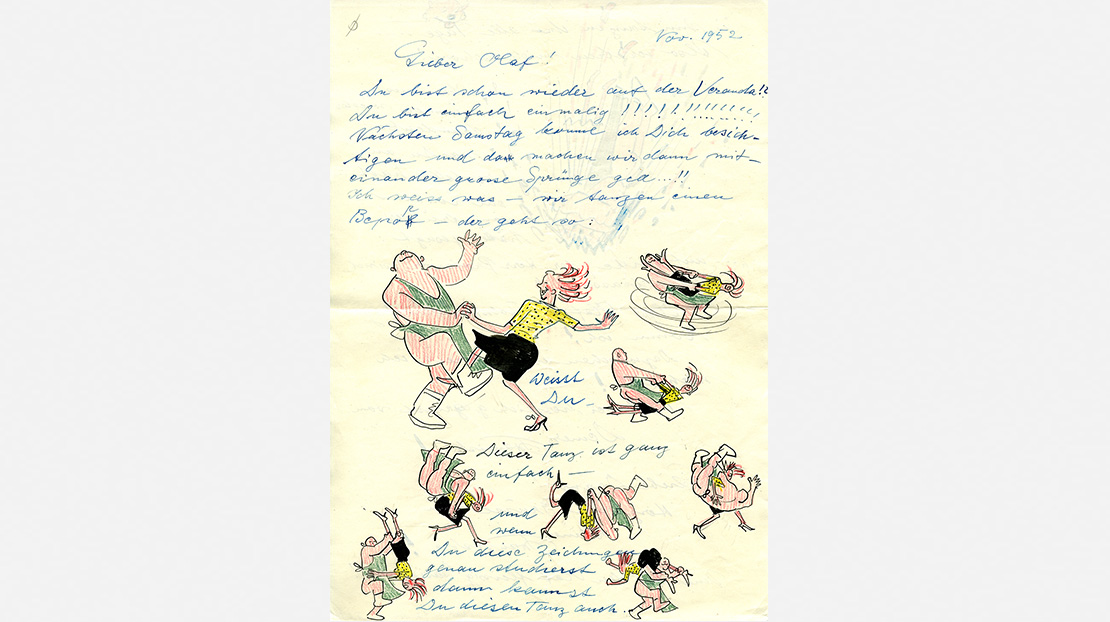 Nov. 1952
Lieber Olaf!
Du bist schon wieder auf der Veranda!?
Du bist einfach einmalig !!!!!!!!!!!!
Nächsten Samstag komme ich Dich besich-
tigen und dann machen wir dann mit-
einander grosse Sprünge gell...!!
Ich weiss was – wir tanzen einen
– der geht so:
Weisst
Du –
Dieser Tanz ist ganz
einfach –
und
wenn
Du diese Zeichnungen
genau studierst
dann kannst
Du diesen Tanz auch..